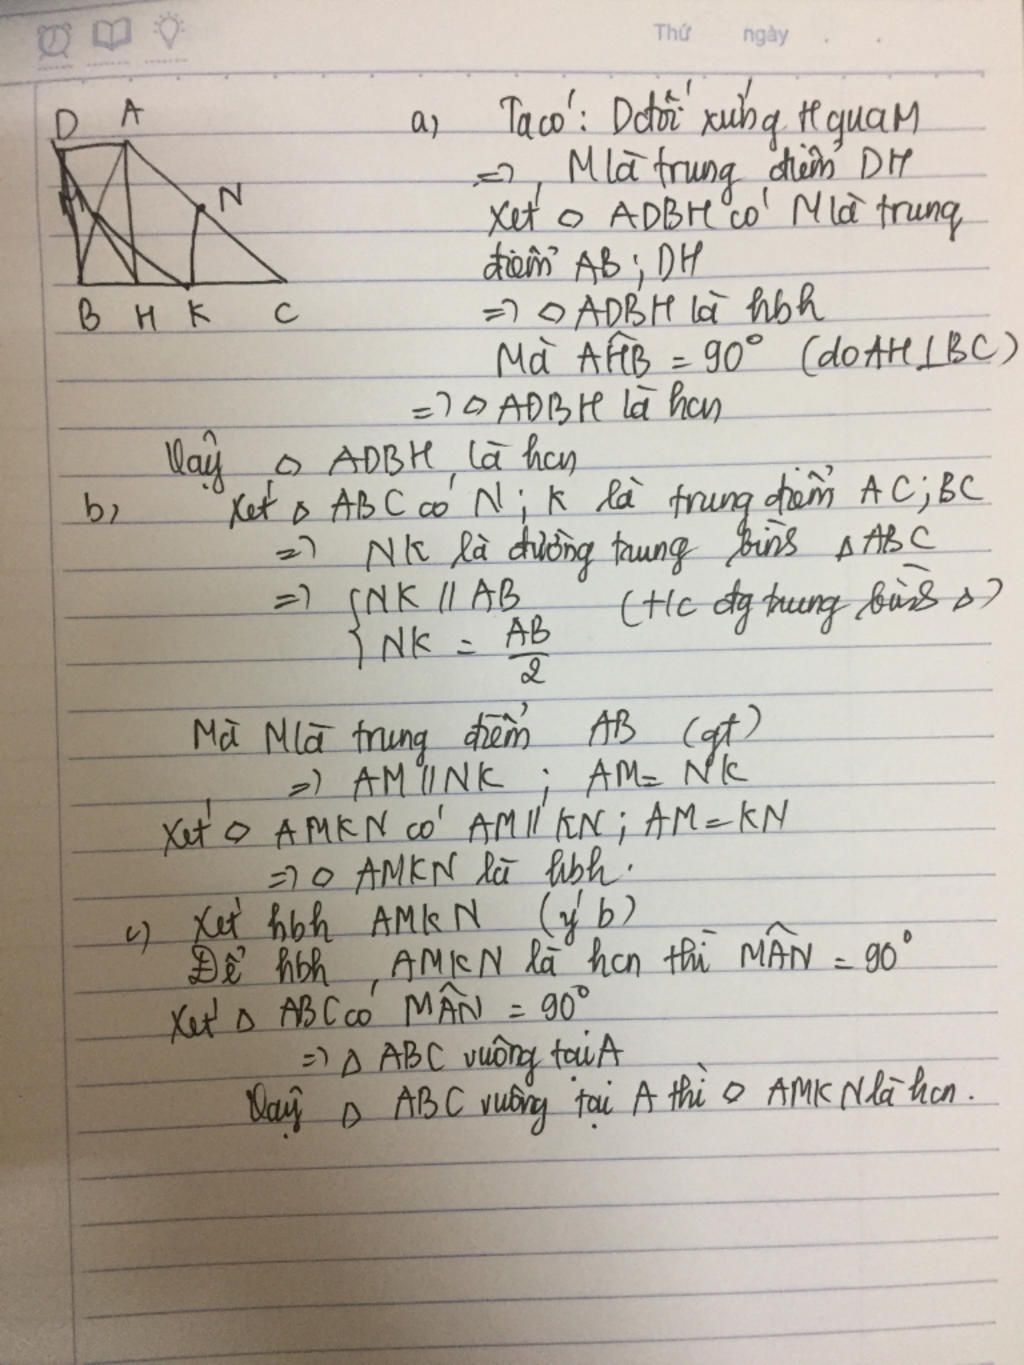 Thứ ngày . .
D A
M N
B H K C
a, Ta có: D đối xứng H qua M
=> M là trung điểm DH
Xét ◇ ADBH có M là trung
điểm AB ; DH
=> ◇ ADBH là hbh
Mà AĤB = 90° (do AH ⊥ BC)
=> ◇ ADBH là hcn
Vậy ◇ ADBH là hcn
b, Xét △ ABC có N ; K là trung điểm AC ; BC
=> NK là đường trung bình △ ABC
=> { NK // AB (t/c đg trung bình △)
{ NK = AB/2
Mà M là trung điểm AB (gt)
=> AM // NK ; AM = NK
Xét ◇ AMKN có AM // KN ; AM = KN
=> ◇ AMKN là hbh.
c) Xét hbh AMKN (ý b)
Để hbh AMKN là hcn thì MÂN = 90°
Xét △ ABC có MÂN = 90°
=> △ ABC vuông tại A
Vậy △ ABC vuông tại A thì ◇ AMKN là hcn.